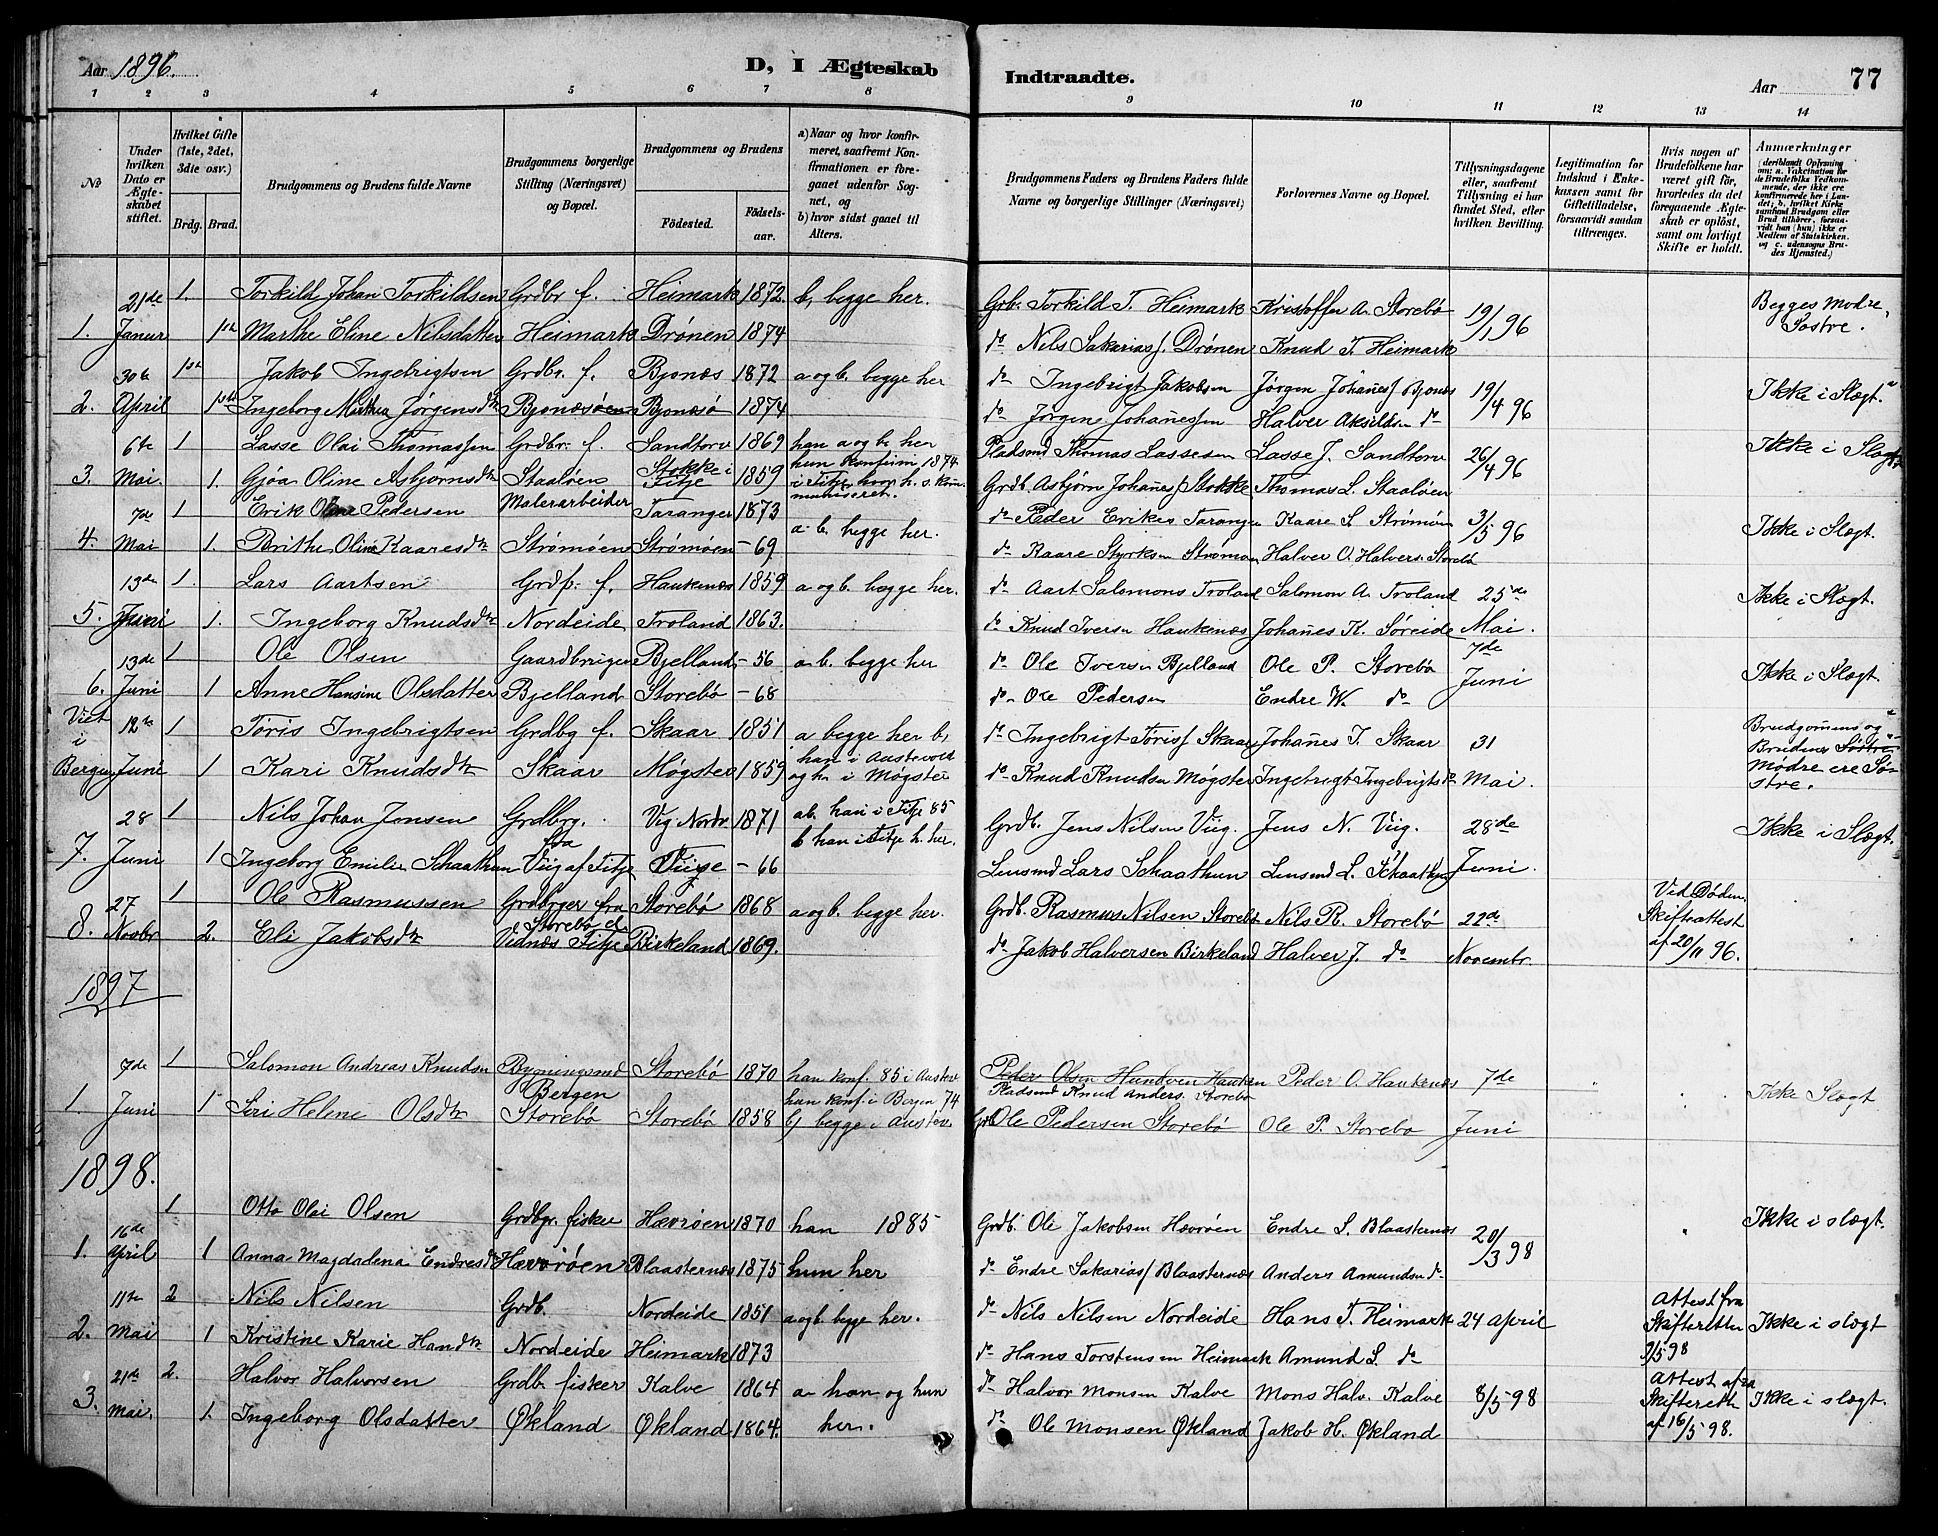 Aar 1896.
D, I Ægteskab
Indtraadte.
Aar
77
1 2 3 4 5 6 7 8 9 10 11 12 13 14
No
Under hvilken Dato er Ægteskabet stiftet.
Hvilket Gifte (1ste, 2det, 3die osv.)
Brdg. Brud.
Brudgommens og Brudens fulde Navne
Brudgommens borgerlige Stilling (Næringsvei) og Bopæl.
Brudgommens og Brudens
Fødested.
Fødsels-aar.
a) Naar og hvor konfirmeret, saafremt Konfirmationen er foregaaet udenfor Sognet, og
b) hvor sidst gaaet til Alters.
Brudgommens Faders og Brudens Faders fulde Navne og borgerlige Stillinger (Næringsvei)
Forlovernes Navne og Bopæl.
Tillysningsdagene eller, saafremt Tillysning ei har fundet Sted, efter hvilken Bevilling.
Legitimation for Indskud i Enkekassen samt for Giftetilladelse, forsaavidt saadan tiltrænges.
Hvis nogen af Brudefolkene har været gift før, hvorledes da det foregaaende Ægteskab er opløst, samt om lovligt Skifte er holdt.
Anmærkninger
(deriblandt Oplysning om: a. Vaccination for de Brudefolks Vedkommende, der ikke ere konfirmerede her i Landet; b. hvilket Kirkesamfund Brudgom eller Brud tilhører, forsaavidt han (hun) ikke er Medlem af Statskirken og c. udensogns Brudes Hjemsted.)
21de 1. Torkild Johan Torkildsen Grdbr f. Heimark 1872 b, begge her. Grb. Torkild T. Heimark Kristoffer A. Storebø 19/1 96 Begges Mødre Søstre.
1. Januar 1ste Marthe Eline Nilsdatter Heimark Drønen 1874 do Nils Sakarias/. Drønen Knud T. Heimark
30te 1ste Jakob Ingebrigtsen Grdbr. f. Bjonæs 1872 a og b. begge her do Ingebrigt Jakobsen Jørgen Johanes/ Bjonæs 19/4 96 Ikke i Slægt.
2. April 1ste Ingeborg Jørgensdtr Bjonæsøen Bjonæsø 1874 do Jørgen Johanes/en Halver do
6te 1 Lasse Olai Thomas/en Grdbr. f. Sandtorv 1869 han a og b. her Pladsmd Thomas Lassesen Lasse J. Sandtorv 26/4 96 Ikke i Slægt
3. Mai. 1. Gjøa Oline Asbjørnsdtr Staaløen Stokke i Fitje 1859 hun konfirm. 1874 i Fitje, hvor h. s. kommuniseret. Grdb. Asbjørn Johanes/ Stokke Thomas L. Staaløen
7de 1 Erik Pedersen Malerarbeider Taranger 1873 a- b. begge her. do Peder Erikes Taranger Kaare S. Strømøen 3/5 96 Ikke i Slægt.
4. Mai 1. Brithe Oline Kaaresdtr Strømøen Strømøen -69 do Kaare Styrksen Strømøen Halver O. Halvers. Storebø
13de 1. Lars Aartsen Grdb. f. Haukenæs 1859 a og b. begge her. do Aart Salomons Troland Salomon A. Troland 25de Ikke i Slægt.
5. Juni 1. Ingeborg Knudsdtr Nordeide Troland 1863. do Knud Iversen Haukenæs Johanes K. Søreide Mai.
13de 1 Ole Olsen Gaardbruger Bjelland -56 a- b. begge her do Ole Iversen Bjelland Ole P. Storebø 7de Ikke i Slægt.
6. Juni 1 Anne Hansine Olsdatter Bjelland Storebø -68 do Ole Pedersen Endre W. do Juni
Viet i Bergen 12te Juni 1 Tøris Ingebrigtsen Grdbg f. Skaar 1851 a begge her b, han i Austevold do Ingebrigt Tøris/ Skaar Johanes I. Skaar 31 Brudgommens og Brudens Søstre Mødre ere Søstre.
1 Kari Knudsdtr Skaar Møgster 1859 og h. i Møgster do Knud Knudsen Møgster Ingebrigt Ingebrigts do Mai.
28 1 Nils Johan Jensen Grdbrg. Vig 1871 ab. han i Fitje 85 Grdb. Jens Nilsen Viig. Jens N. Viig. 28de Ikke i Slægt.
7. Juni 1 Ingeborg Emilie Schaathun fra Viig af Fitje -66 b han i Fitje h. her. Lensmd Lars Schaathun Lensmd L. Schaathun Juni.
27 1 Ole Rasmussen Grdbrger fra Storebø 1868 a og b. begge her. Grdb. Rasmus Nilsen Storebø Nils R. Storebø 22de Ved Døden. Skifteattest af 20/11 96.
8. Novbr 2. Eli Jakobsdtr Storebø Vidnæs Fitje Birkeland 1869. do Jakob Halversen Birkeland Halver J. do Novembr.
1897
7de 1 Salomon Andreas Knudsen Bygningsmd Bergen Storebø 1870 han konf. 85 i Austev. Peder Olsen Hundven Hauken Pladsmd Knud Anders. Storebø Peder O. Haukenæs 7de Ikke Slægt
1. Juni 1 Siri Helene Olsdtr Storebø Storebø 1858 hun konf. i Bergen 74 b) begge i Austev. Grdb Ole Pedersen Storebø Ole P. Storebø Juni
1898.
16de 1 Otto Olai Olsen Grdbgr. fisker Hævrøen 1870 han 1885 Grdb. Ole Jakobsen Hævrøen Endre S. Blaasternæs 20/3 98 Ikke i slægt.
1. April 1 Anna Magdalena Endresdtr Hævrøen Blaasternæs 1875 hun her do Endre Sakarias/ Blaasternæs Anders Amundsen do
11te 2 Nils Nilsen Grdb. Nordeide 1851 a og b. begge her. do Nils Nilsen Nordeide Hans T. Heimark 24 April Attest fra Skifteretten 9/5 98 Ikke i slægt
2. Mai 1 Kristine Karie Hansdtr Nordeide Heimark 1873 do Hans Torstensen Heimark Amund S. do
21de 2. Halvor Halvorsen Grdb. fisker Kalve 1864 a- han og hun her. do Halvor Monsen Kalve Mons Halv. Kalve 8/5 98 Attest fra Skifterett af 16/5 98. Ikke i slægt.
3. Mai. 1. Ingeborg Olsdatter Økland Økland 1864. do Ole Monsen Økland Jakob H. Økland